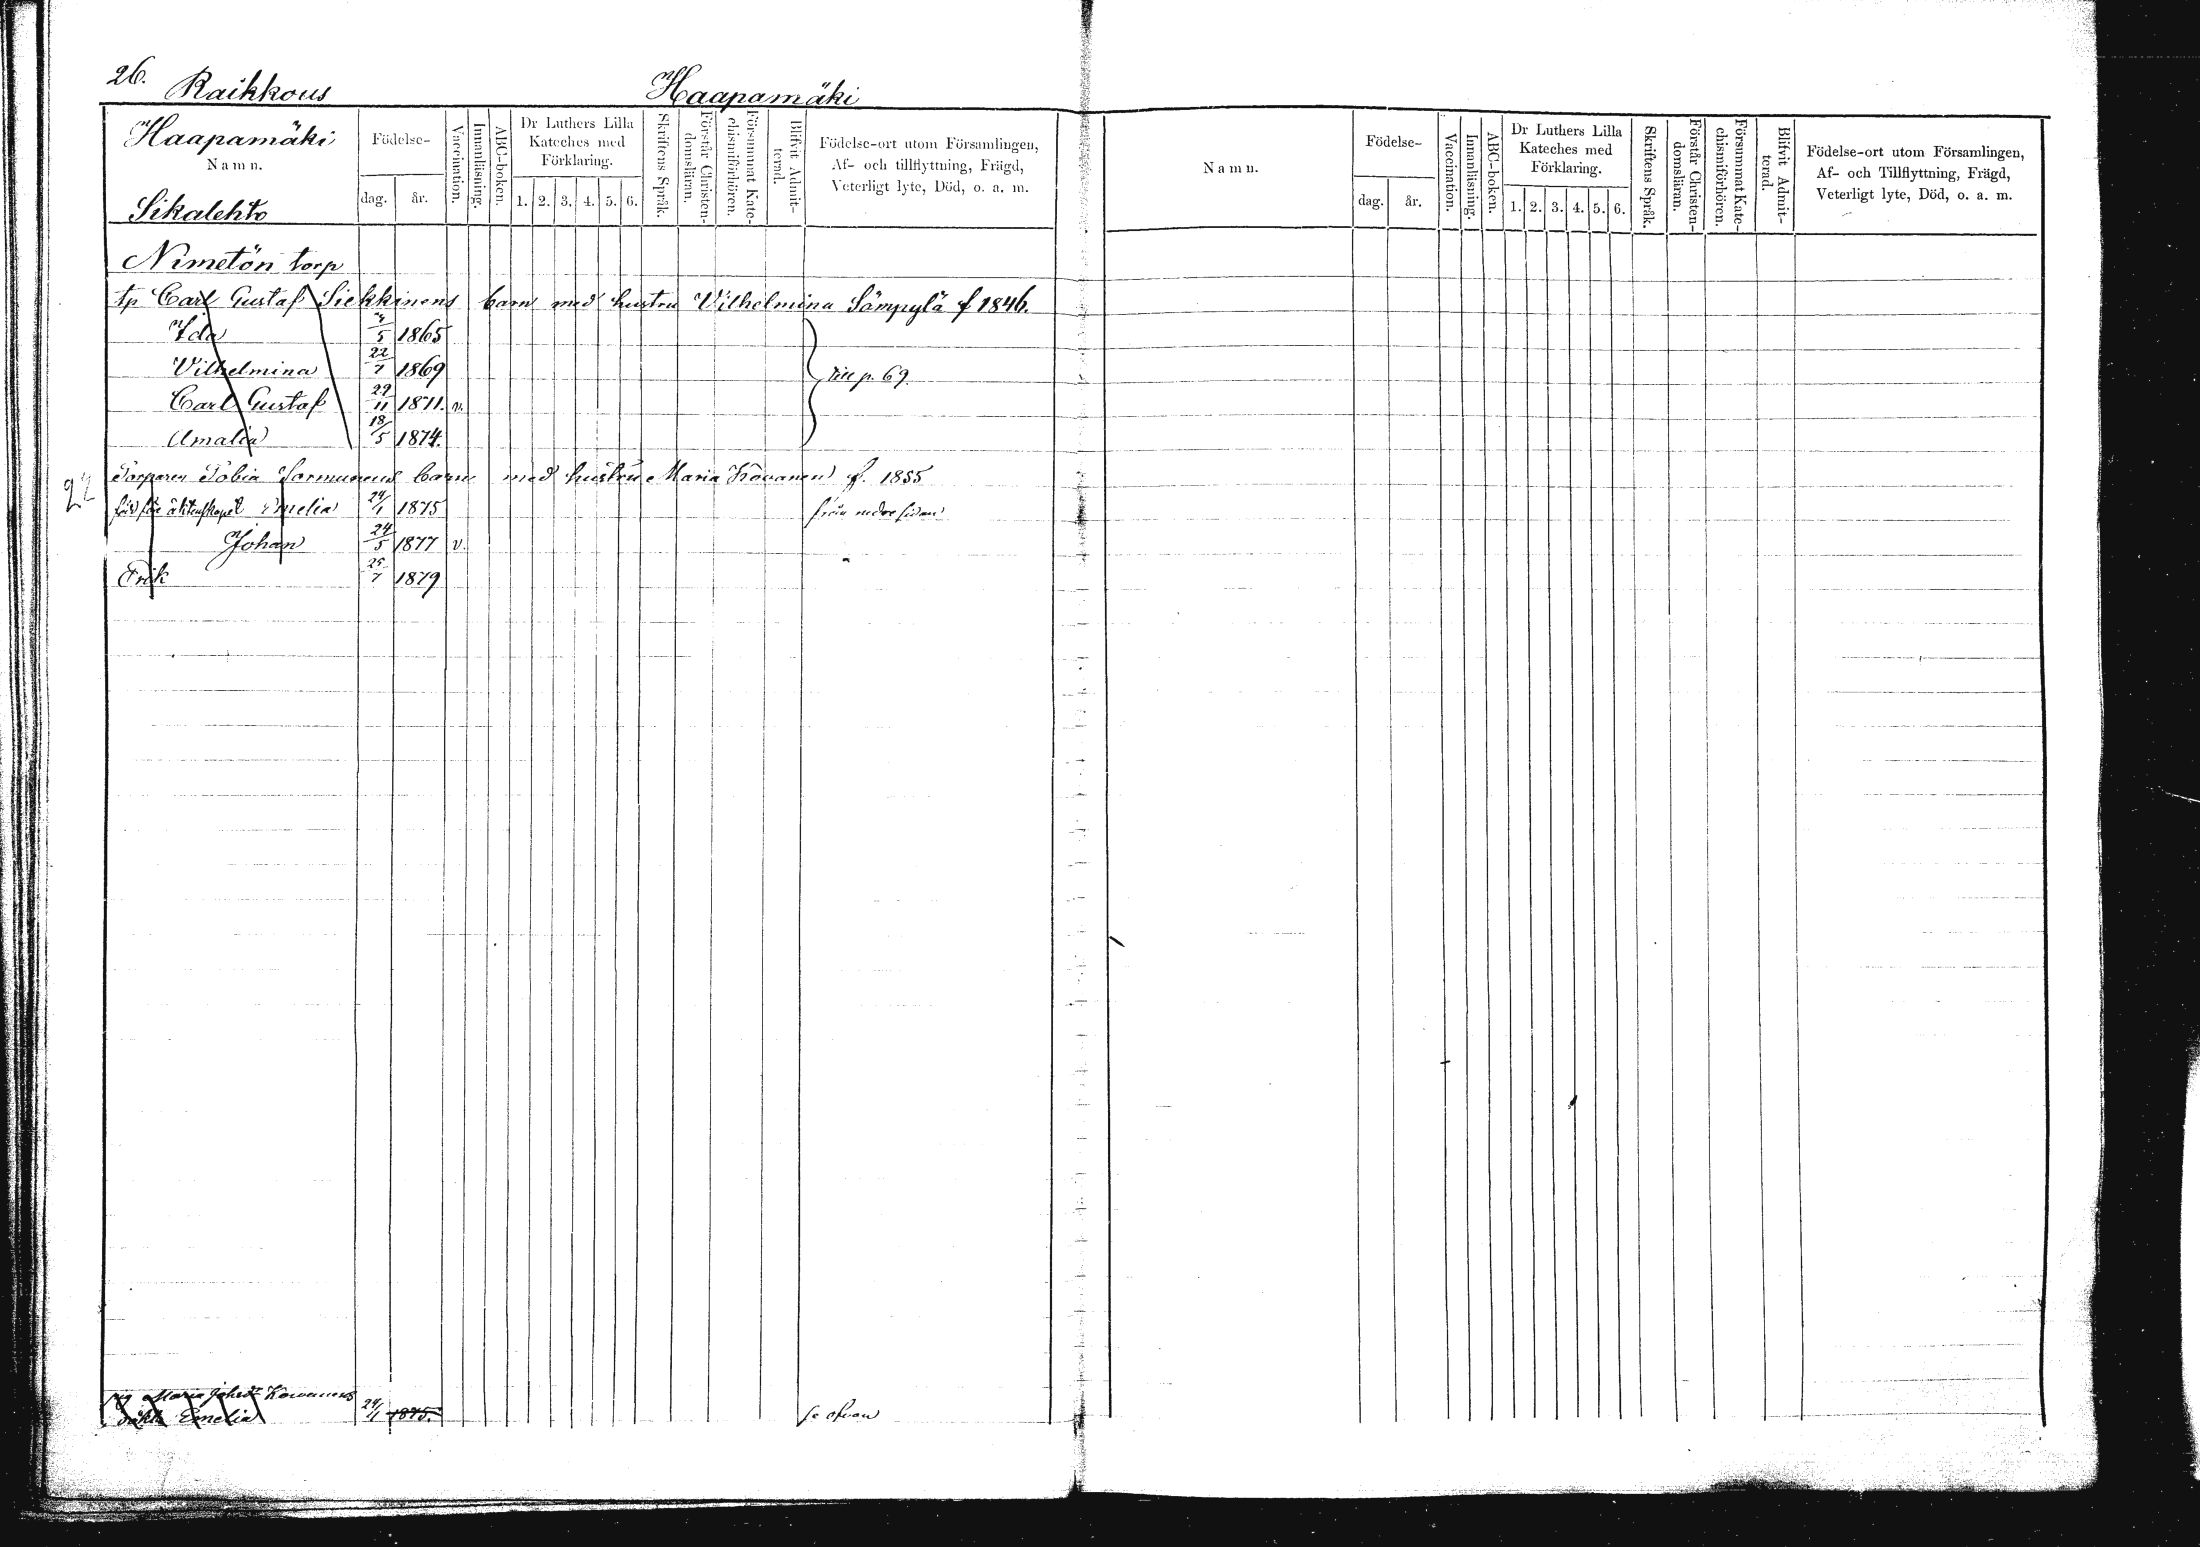 26.
Raikkous
Haapamäki
Haapamäki
Namn.
Sikalehto
Födelse-
dag. år.
Vaccination.
Innanläsning.
ABC-boken.
Dr Luthers Lilla
Kateches med
Förklaring.
1. 2. 3. 4. 5. 6.
Skriftens Språk.
Förstår Christen-
domsläran.
Försummat Kate-
chismiförhören.
Blifvit Admit-
terad.
Födelse-ort utom Församlingen,
Af- och tillflyttning, Frägd,
Veterligt lyte, Död, o. a. m.
Nimetön torp
tp Carl Gustaf Siekkinens barn med hustru Vilhelmina Sämpylä f 1846.
Ida 5 1865
Vilhelmina 22/7 1869
till p. 69.
Carl Gustaf 29/11 1871. v.
Amalia 18/5 1874.
Torparen Tobia Sormunens barn med hustru Maria Kovanen f. 1855
22
äktenskapet Emelia 24/1 1875 från nedre sidan
Johan 24/5 1877 v.
Erik 25/7 1879
Maria Kovanens
Emelia 24/1 1875. se ofvan
Namn.
Födelse-
dag. år.
Vaccination.
Innanläsning.
ABC-boken.
Dr Luthers Lilla
Kateches med
Förklaring.
1. 2. 3. 4. 5. 6.
Skriftens Språk.
Förstår Christen-
domsläran.
Försummat Kate-
chismiförhören.
Blifvit Admit-
terad.
Födelse-ort utom Församlingen,
Af- och Tillflyttning, Frägd,
Veterligt lyte, Död, o. a. m.